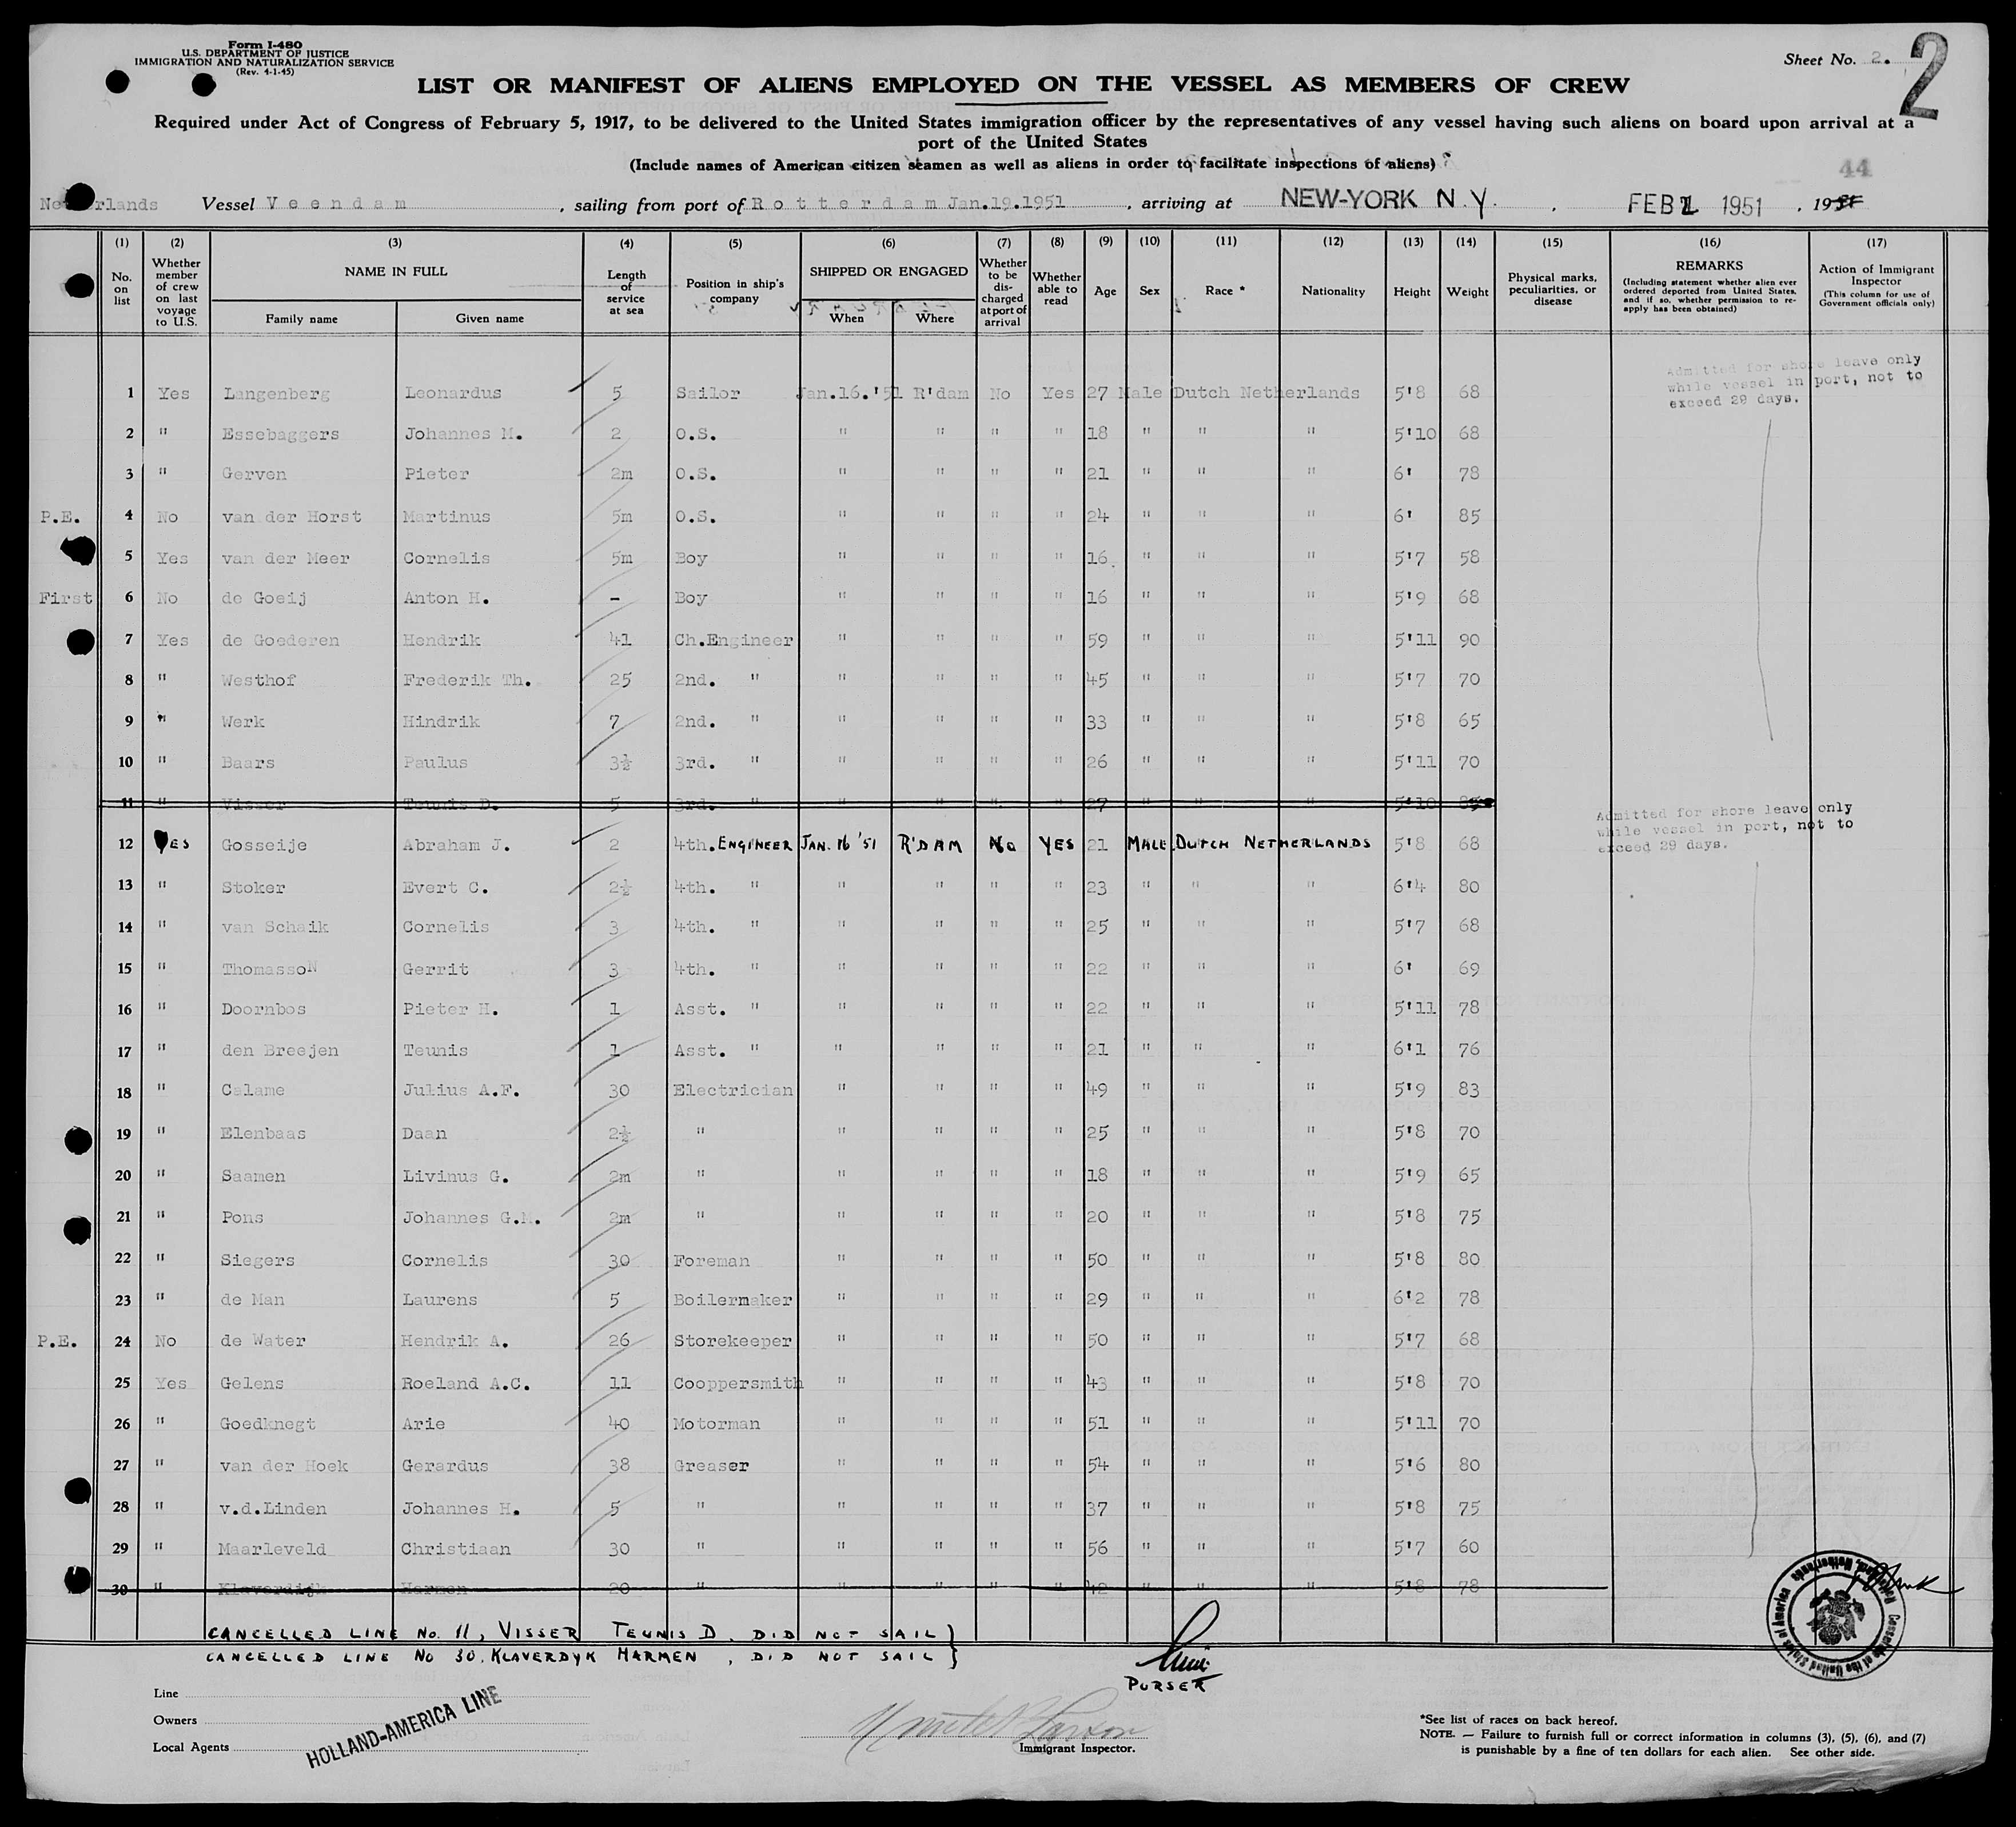 Form I-480
U.S. DEPARTMENT OF JUSTICE
IMMIGRATION AND NATURALIZATION SERVICE
(Rev. 4-1-45)
Sheet No. 2.
2
LIST OR MANIFEST OF ALIENS EMPLOYED ON THE VESSEL AS MEMBERS OF CREW
Required under Act of Congress of February 5, 1917, to be delivered to the United States immigration officer by the representatives of any vessel having such aliens on board upon arrival at a
port of the United States
(Include names of American citizen seamen as well as aliens in order to facilitate inspections of aliens)
44
Netherlands Vessel Veendam, sailing from port of Rotterdam Jan.19.1951, arriving at NEW-YORK N.Y. FEB 1 1951, 1951
(1) (2) (3) (4) (5) (6) (7) (8) (9) (10) (11) (12) (13) (14) (15) (16) (17)
No. on list | Whether member of crew on last voyage to U.S. | NAME IN FULL Family name Given name | Length of service at sea | Position in ship's company | SHIPPED OR ENGAGED When Where | Whether to be discharged at port of arrival | Whether able to read | Age | Sex | Race * | Nationality | Height | Weight | Physical marks, peculiarities, or disease | REMARKS (Including statement whether alien ever ordered deported from United States, and if so, whether permission to reapply has been obtained) | Action of Immigrant Inspector (This column for use of Government officials only)
Admitted for shore leave only
while vessel in port, not to
exceed 29 days.
1 Yes Langenberg Leonardus 5 Sailor Jan.16.'51 R'dam No Yes 27 Male Dutch Netherlands 5'8 68
2 " Essebaggers Johannes M. 2 O.S. " " " " 18 " " " 5'10 68
3 " Gerven Pieter 2m O.S. " " " " 21 " " " 6' 78
P.E. 4 No van der Horst Martinus 5m O.S. " " " " 24 " " " 6' 85
5 Yes van der Meer Cornelis 5m Boy " " " " 16. " " " 5'7 58
First 6 No de Goeij Anton H. - Boy " " " " 16 " " " 5'9 68
7 Yes de Goederen Hendrik 41 Ch.Engineer " " " " 59 " " " 5'11 90
8 " Westhof Frederik Th. 25 2nd. " " " " " 45 " " " 5'7 70
9 " Werk Hindrik 7 2nd. " " " " " 33 " " " 5'8 65
10 " Baars Paulus 3½ 3rd. " " " " " 26 " " " 5'11 70
11 " Visser Teunis D. 5 3rd. " " " " " 27 " " " 5'10 85
Admitted for shore leave only
while vessel in port, not to
exceed 29 days.
12 YES Gosseije Abraham J. 2 4th. ENGINEER JAN. 16 '51 R'DAM No YES 21 MALE DUTCH NETHERLANDS 5'8 68
13 " Stoker Evert C. 2½ 4th. " " " " " 23 " " " 6'4 80
14 " van Schaik Cornelis 3 4th. " " " " " 25 " " " 5'7 68
15 " ThomassoN Gerrit 3 4th. " " " " " 22 " " " 6' 69
16 " Doornbos Pieter H. 1 Asst. " " " " " 22 " " " 5'11 78
17 " den Breejen Teunis 1 Asst. " " " " " 21 " " " 6'1 76
18 " Calame Julius A.F. 30 Electrician " " " " 49 " " " 5'9 83
19 " Elenbaas Daan 2½ " " " " " 25 " " " 5'8 70
20 " Saamen Livinus G. 2m " " " " " 18 " " " 5'9 65
21 " Pons Johannes G.M. 2m " " " " " 20 " " " 5'8 75
22 " Siegers Cornelis 30 Foreman " " " " 50 " " " 5'8 80
23 " de Man Laurens 5 Boilermaker " " " " 29 " " " 6'2 78
P.E. 24 No de Water Hendrik A. 26 Storekeeper " " " " 50 " " " 5'7 68
25 Yes Gelens Roeland A.C. 11 Cooppersmith " " " " 43 " " " 5'8 70
26 " Goedknegt Arie 40 Motorman " " " " 51 " " " 5'11 70
27 " van der Hoek Gerardus 38 Greaser " " " " 54 " " " 5'6 80
28 " v.d.Linden Johannes H. 5 " " " " " 37 " " " 5'8 75
29 " Maarleveld Christiaan 30 " " " " " 56 " " " 5'7 60
30 " Klaverdijk Harmen 20 " " " " " 42 " " " 5'8 78
CANCELLED LINE No. 11, VISSER TEUNIS D, DID NOT SAIL }
CANCELLED LINE No 30. KLAVERDYK HARMEN, DID NOT SAIL }
PURSER
Line
Owners
Local Agents
HOLLAND-AMERICA LINE
Immigrant Inspector.
*See list of races on back hereof.
NOTE. — Failure to furnish full or correct information in columns (3), (5), (6), and (7)
is punishable by a fine of ten dollars for each alien. See other side.